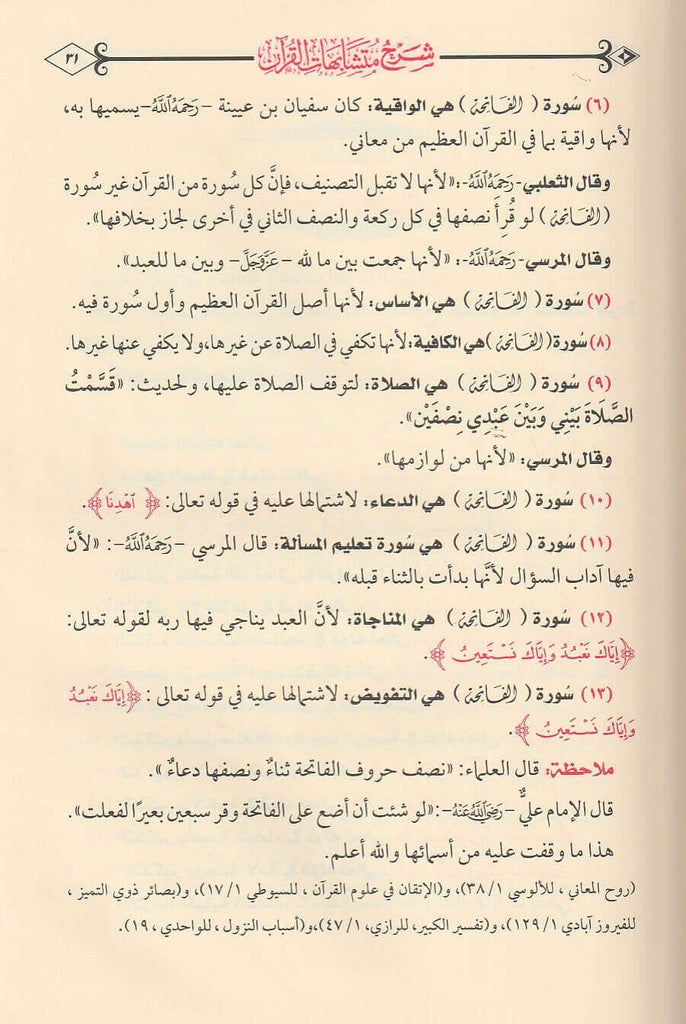 شرح متشابهات القرآن
٣١
(٦) سُورة ( الفاتحة ) هي الواقية: كان سفيان بن عيينة –رَحِمَهُ ٱللَّهُ–يسميها به،
لأنها واقية بما في القرآن العظيم من معاني.
وقال الثعلبي-رَحِمَهُ ٱللَّهُ-:«لأنها لا تقبل التصنيف، فإنَّ كل سُورة من القرآن غير سُورة
(الفاتحة ) لو قُرِأَ نصفها في كل ركعة والنصف الثاني في أخرى لجاز بخلافها».
وقال المرسي-رَحِمَهُ ٱللَّهُ-: «لأنها جمعت بين ما لله –عَزَّوَجَلَّ– وبين ما للعبد».
(٧) سُورة ( الفاتحة ) هي الأساس: لأنها أصل القرآن العظيم وأول سُورة فيه.
(٨) سُورة(الفاتحة )هي الكافية:لأنها تكفي في الصلاة عن غيرها،ولا يكفي عنها غيرها.
(٩) سُورة ( الفاتحة ) هي الصلاة: لتوقف الصلاة عليها، ولحديث: «قَسَّمْتُ
الصَّلَاةَ بَيْنِي وَبَيْنَ عَبْدِي نِصْفَيْن».
وقال المرسي: «لأنها من لوازمها».
(١٠) سُورة ( الفاتحة ) هي الدعاء: لاشتمالها عليه في قوله تعالى: ﴿ ٱهْدِنَا ﴾.
(١١) سُورة ( الفاتحة ) هي سُورة تعليم المسألة: قال المرسي –رَحِمَهُ ٱللَّهُ–: «لأنَّ
فيها آداب السؤال لأنَّها بدأت بالثناء قبله».
(١٢) سُورة ( الفاتحة ) هي المناجاة: لأنَّ العبد يناجي فيها ربه لقوله تعالى:
﴿إِيَّاكَ نَعْبُدُ وَإِيَّاكَ نَسْتَعِينُ ﴾.
(١٣) سُورة ( الفاتحة ) هي التفويض: لاشتمالها عليه في قوله تعالى : ﴿إِيَّاكَ نَعْبُدُ
وَإِيَّاكَ نَسْتَعِينُ ﴾.
ملاحظة: قال العلماء: «نصف حروف الفاتحة ثناءٌ ونصفها دعاءٌ ».
قال الإمام عليٌّ –رَضِيَ ٱللَّهُ عَنْهُ–:«لو شئت أن أضع على الفاتحة وقر سبعين بعيرًا لفعلت».
هذا ما وقفت عليه من أسمائها والله أعلم.
(روح المعاني ، للألوسي ١/ ٣٨)، و(الإتقان في علوم القرآن ، للسيوطي ١/ ١٧)، و(بصائر ذوي التميز ،
للفيروز آبادي ١/ ١٢٩)، و(تفسير الكبير، للرازي، ١/ ٤٧)،و(أسباب النزول ، للواحدي ، ١٩).